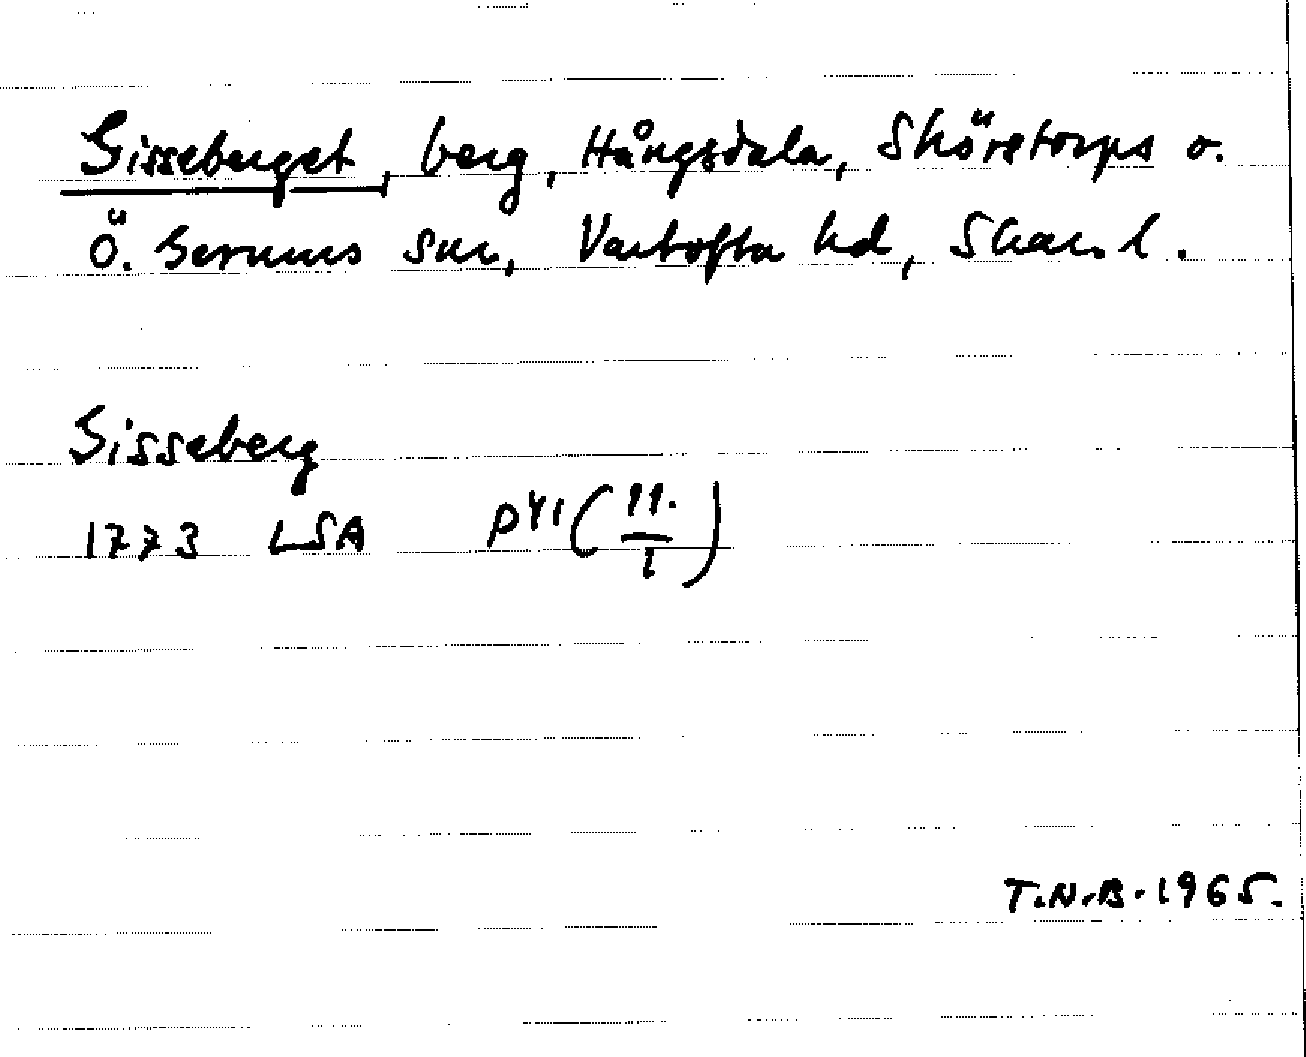 Gisseberget, berg, Hångsdala, Skörstorps o.
Ö. Gerums snr, Vartofta hd, Skar. l.
Gisseberg
1773 LSA P41 (11./1)
T.N.B. 1965.